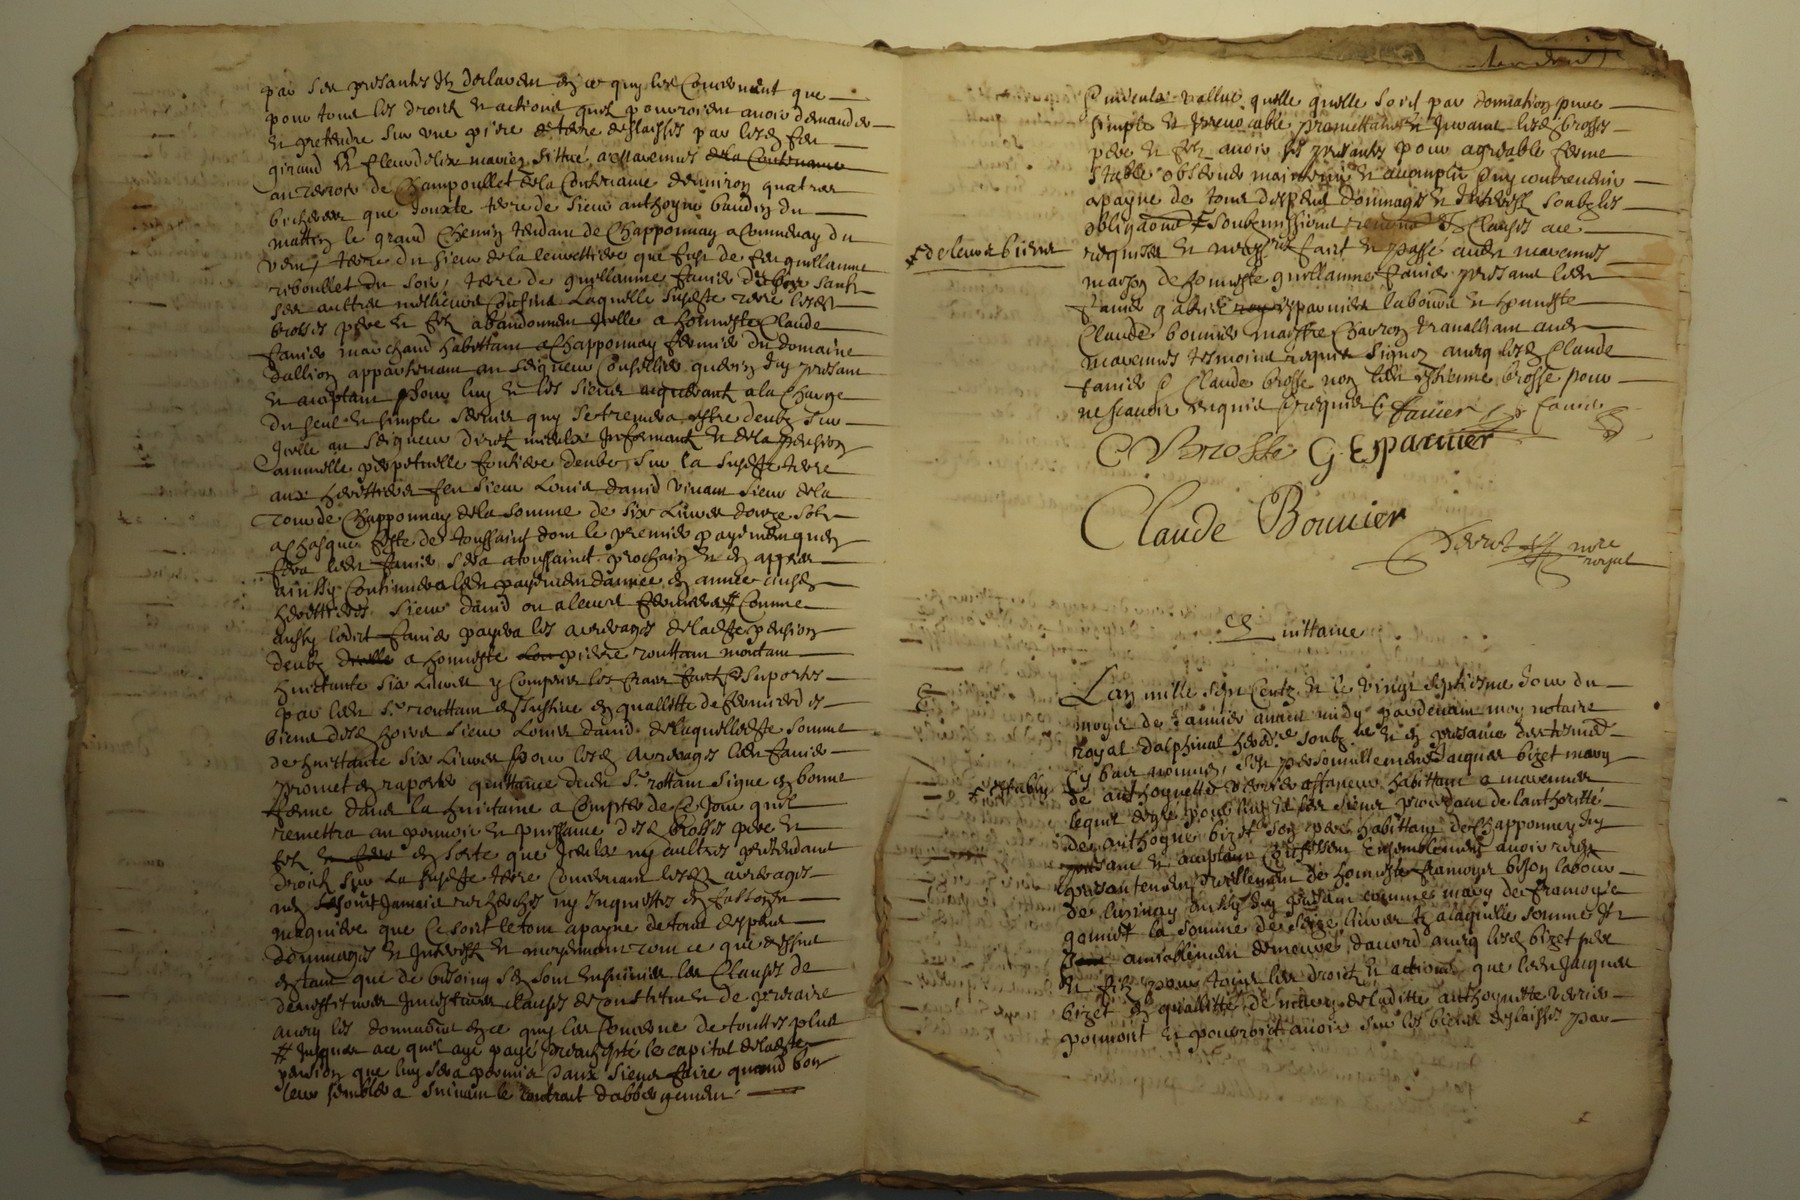 par ses presantes et declarent en ce quy les Concernent que
pour tous les droits et actions quils pourroient avoir demander
et pretendre sur une piece de terre deslaissés par lesd feu
giraud et fleurdelix mariez sittué a Mavennes de la Contenance
au terroir de Champoullet de la Contenance denviron quatre
bicherees que jouxte terre de sieur anthoyne baudin du
mattin le grand Chemin tendant de Chapponnay a Communay du
vent terre du sieur de la levrettiere que fust de feu guillaume
riboullet du soir, terre de guillaume favier de bize sauf
ses aultres meilleures Confins Laquelle susditte terre lesdts
brosses pere et filz abandonnent Icelle a honneste Claude
favier marchand habittant a Chapponnay fermier du domaine
dallion appartenant au seigneur Conseiller
et aceptant pour luy et les siens a la Charge
du seul et simple servis quy se treuvera estre deubz sur
Icelle au seigneur direct et de la pension
annuelle perpetuelle fonciere deube, sur la susditte terre
aux herittiers feu sieur Louis david vivant sieur de la
tour de Chapponnay de la somme de six Livres douze solz
a Chasque feste de toussaint dont le premier payement quen
fera ledit favier sera a toussaint prochain et en appres
ainssy Continuer ledit payement dannee en annee ausdts
herittiers sieur david ou a leurs fermiers Comme
aussy ledit favier payera les arrerages de laditte pension
deubz a honneste pierre routtam montant
huittante six Livres y Compris les frais faict et suportes
par ledit sr routtam en quallitte de fermier des
biens desdts hoirs sieur Louis david de laquelle ditte somme
de huittante six Livres pour lesd arrerages ledit favier
promet en raporter quittance dudit sr rottam signe en bonne
forme dans la huictaine a Compter de Ce Jour quil
remettra au pouvoir et puissance desd brosses pere et
filz en sorte que Iceulx ny aultres pretendant
droict sur La susditte terre Concernant lesdts arrerages
nen soint Jamais recherches ny Inquiettés en fasson
magniere que Ce soit le tout a payne de tous despens
dommages et Interestz et moyennant tout ce que dessus
en tant que de besoing sen sont ensuivies les Clauses de
desvestiture Investiture Clauses de constitut et de precaire
avecq les donnations en ce quy les Concerne de touttes plus
# Jusques a ce quil aye payé le capital de laditte
pension que luy sera permis et aux siens faire quand bon
leur semblera suivant le contrait dabbergement
Cuivenla vallue quelle quelle soit par donnation pure
simple et Irrevocable promettants et Jurant lesdts brosses
pere et filz avoir les presantes pour agreable ferme
stable observer maintenir et accomplir sans y contrevenir
a payne de tous despens dommages et Interestz soubz les
obligaõns # soubzmissions et Clauses a ce
requises et necessaires faict et passé audit mavennes
# de leurs biens
maison de honneste guillaume favier presant ledit
favier gabriel esparnier laboureur et honneste
Claude bonnier maistre Charron travailliant audit
mavennes tesmoins requis signez avecq lesd Claude
favier et Claude brosse non ledit estienne brosse pour
ne scavoir enquis et requis C favier favier
C Brosse G. Esparnier
Claude Bonnier
nore
royal
Quittance
Lan mille sept Centz et le vingt septiesme Jour du
moys de Janvier avant midy pardevant moy notaire
royal dalphinal heredre soubzné et en presance des tesmoings
Cy bas nommes, sest personnellement Jacques bizet mary
# establis
de anthoynette verrier affaneur habittant a mavennes
lequel de gré pour luy et les siens procedant de lauthoritté
de anthoyne bizet son pere habittant de Chapponnay Icy
presant et aceptant Confessent Ensemblement avoir receu
presantement Reellement de honneste françoys bizon laboureur
de luzinay aussy Icy presant comme mary de françoyse
gonnet la somme de seize livres et a laquelle somme Ilz
amiablement demeuré daccord avecq lesd bizet pere
et filz pour tous les droictz et actions que ledit Jacques
bizet en quallitté de mary de laditte anthoynette verrier
pourroit et pourroict avoir sur les biens deslaissés par